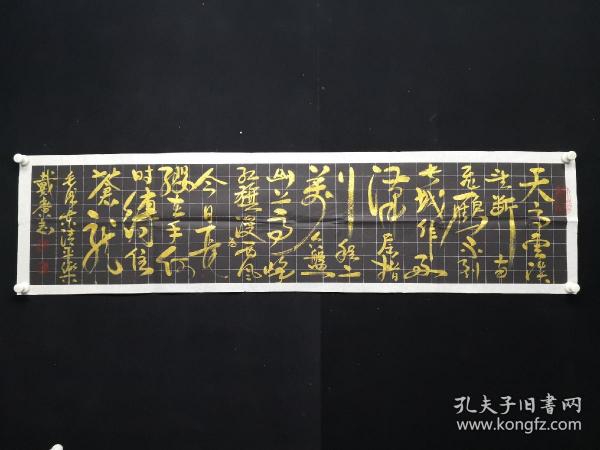 天高雲淡
望断南
飛雁不到
長城非好
汉屈指
行程二
萬六盤
山上高峰
红旗漫西风
卷
今日長
缨在手何
時縛住
蒼龍
毛泽东清平樂
戴
孔夫子旧书网
www.kongfz.com